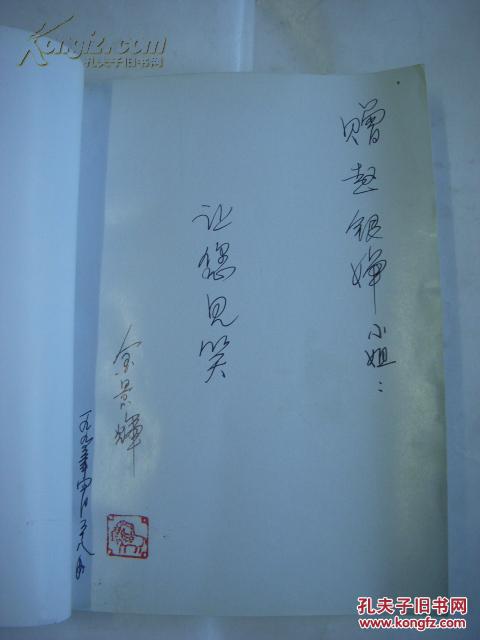 赠赵银婵小姐：
让您见笑
金景辉
一九九三年四月二十八日
Kongfz.com
孔夫子旧书网
孔夫子旧书网
www.kongfz.com